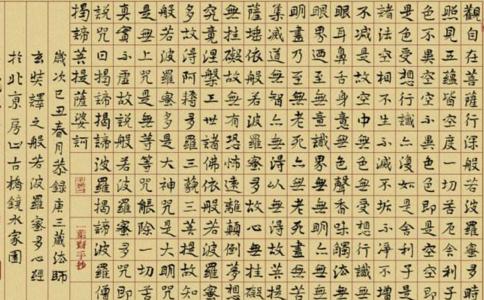 觀自在菩薩行深般若波羅蜜多時
照見五蘊皆空度一切苦厄舍利子
色不異空空不異色色即是空空即
是色受想行識亦復如是舍利子是
諸法空相不生不滅不垢不淨不增
不減是故空中無色無受想行識無
眼耳鼻舌身意無色聲香味觸法無
眼界乃至無意識界無無明亦無無
明盡乃至無老死亦無老死盡無苦
集滅道無智亦無得以無所得故菩提
薩埵依般若波羅蜜多故心無罣礙
無罣礙故無有恐怖遠離顛倒夢想
究竟涅槃三世諸佛依般若波羅蜜
多故得阿耨多羅三藐三菩提故知
般若波羅蜜多是大神咒是大明咒
是無上咒是無等等咒能除一切苦
真實不虛故說般若波羅蜜多咒即
說咒曰揭諦揭諦波羅揭諦波羅僧
揭諦菩提薩婆訶
歲次己丑春月恭錄唐三藏法師
玄奘譯之般若波羅蜜多心經
於北京房山古橋鏡水家園